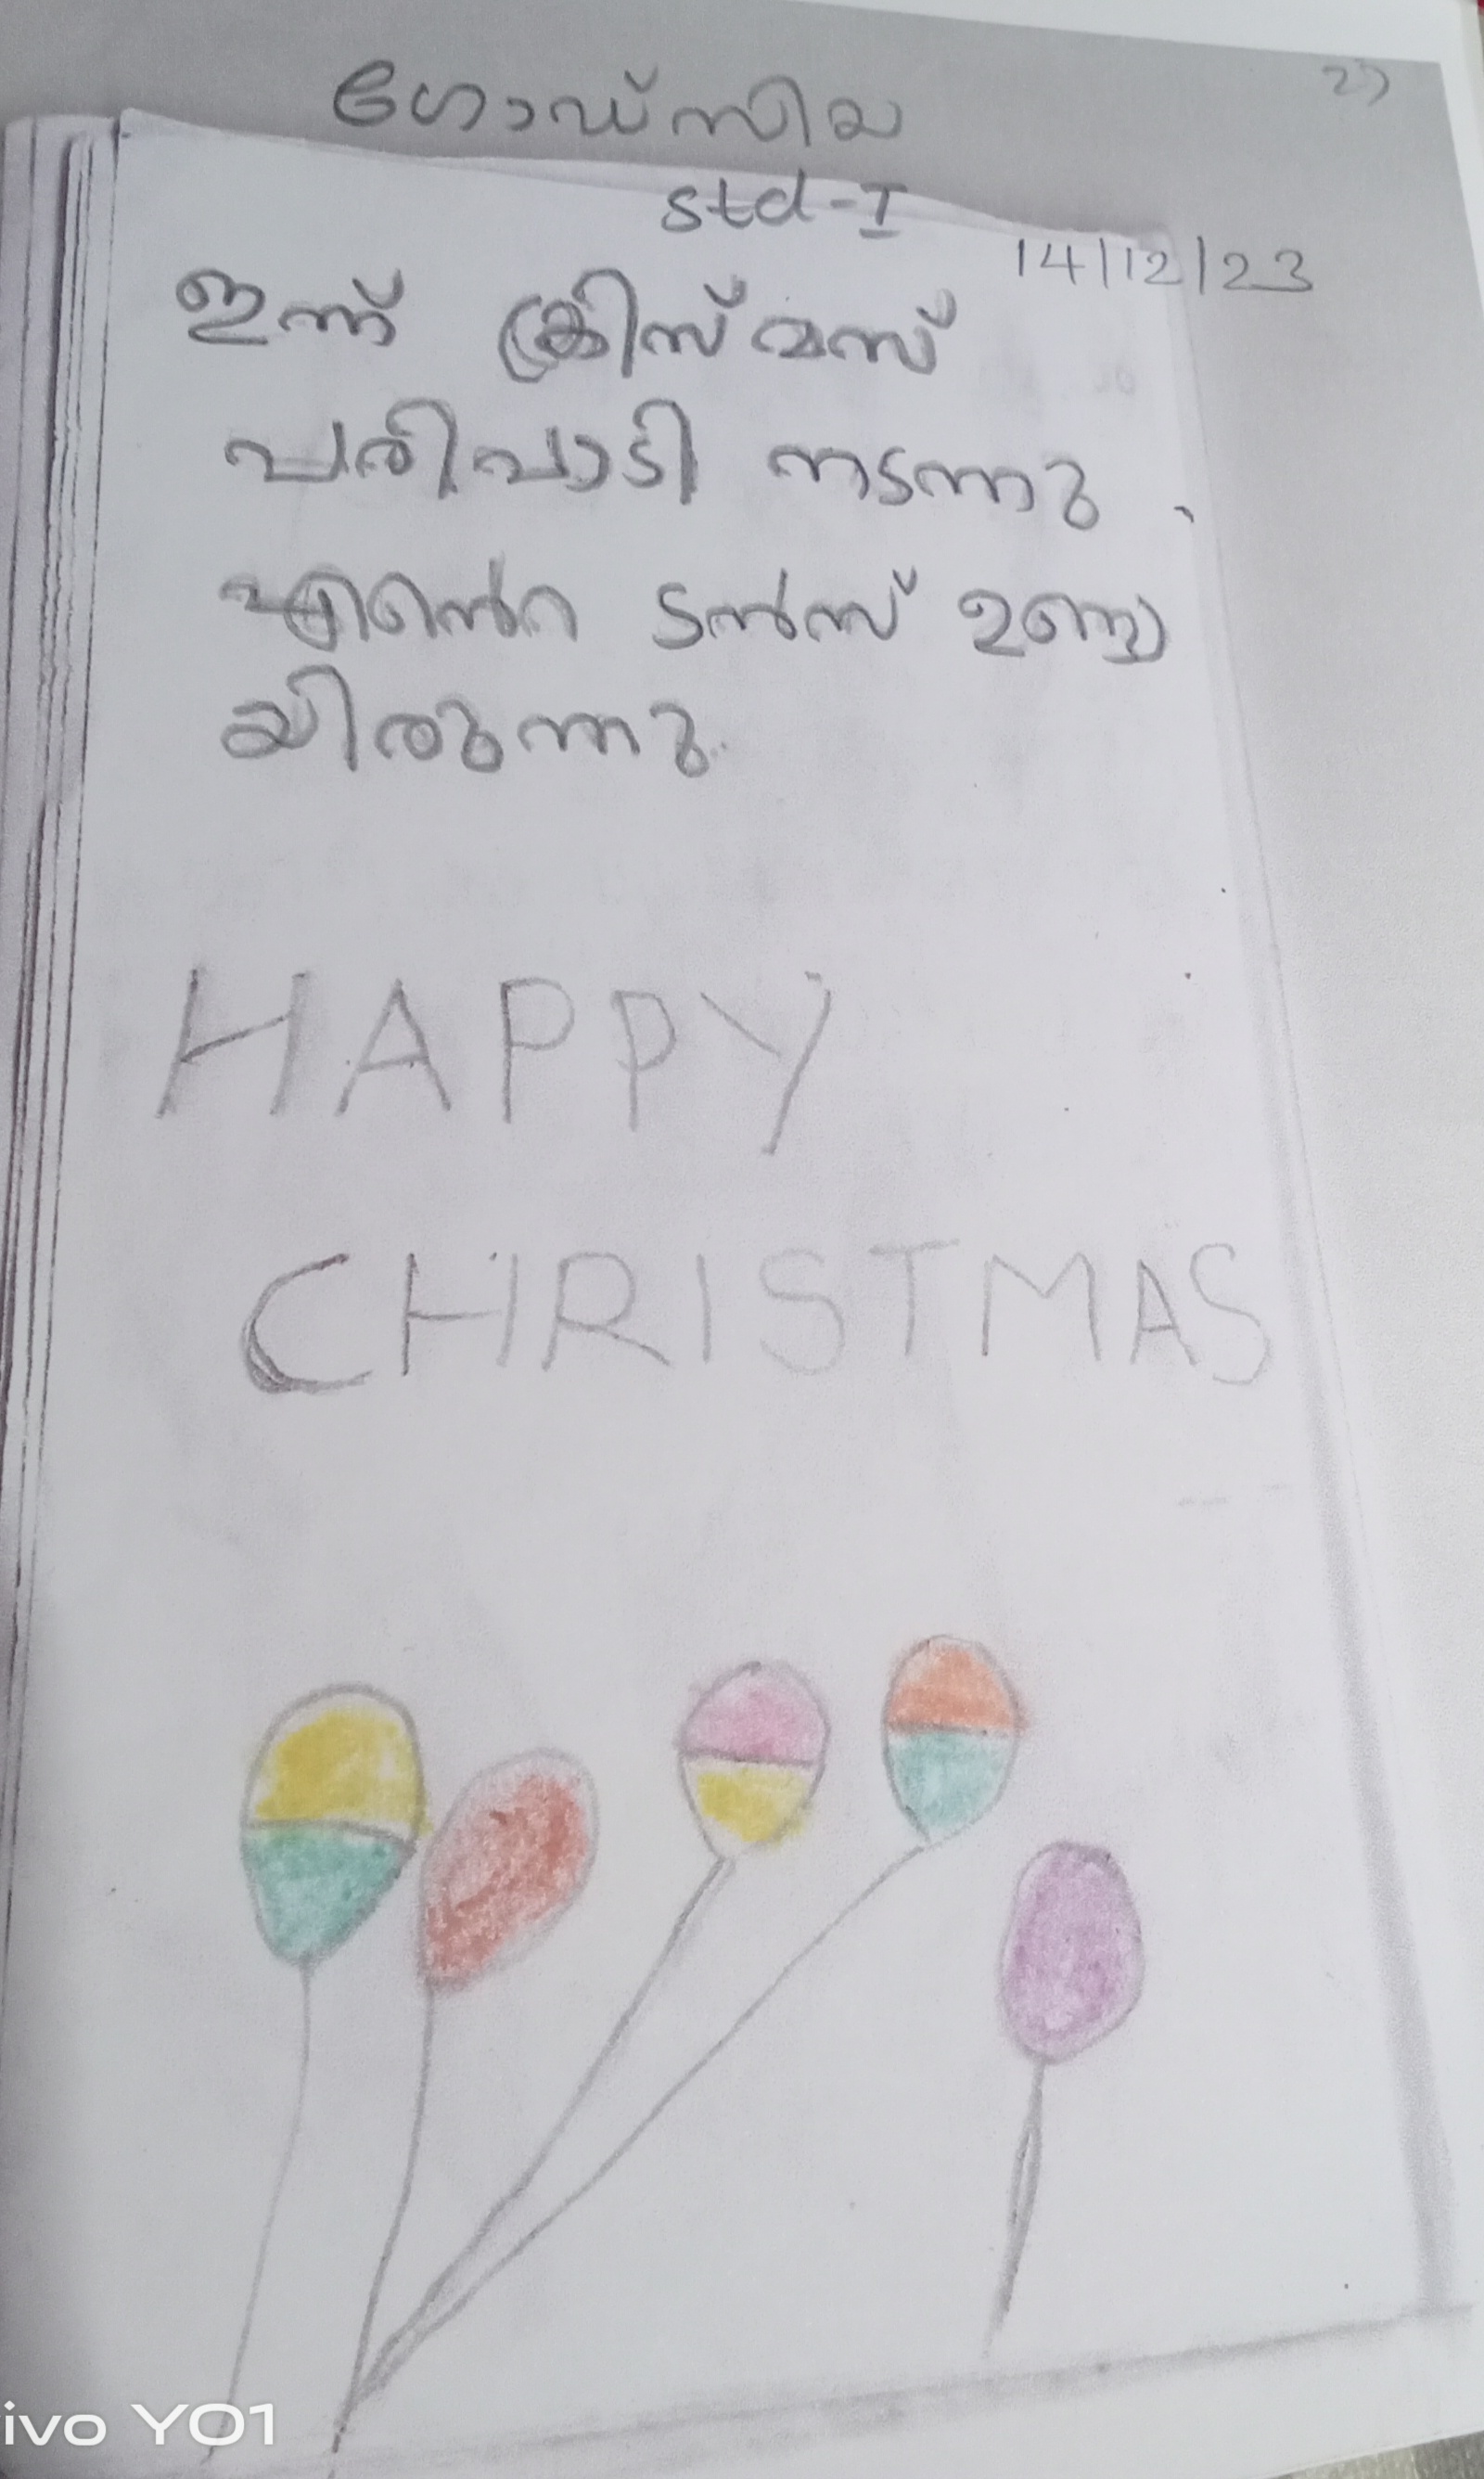 ഗോഡ്സിയ
27
std-I
14/12/23
ഇന്ന് ക്രിസ്മസ്
പരിപാടി നടന്നു.
എൻെറ ടൻസ് ഉണ്ടാ
യിരുന്നു.
HAPPY
CHRISTMAS
ivo Y01